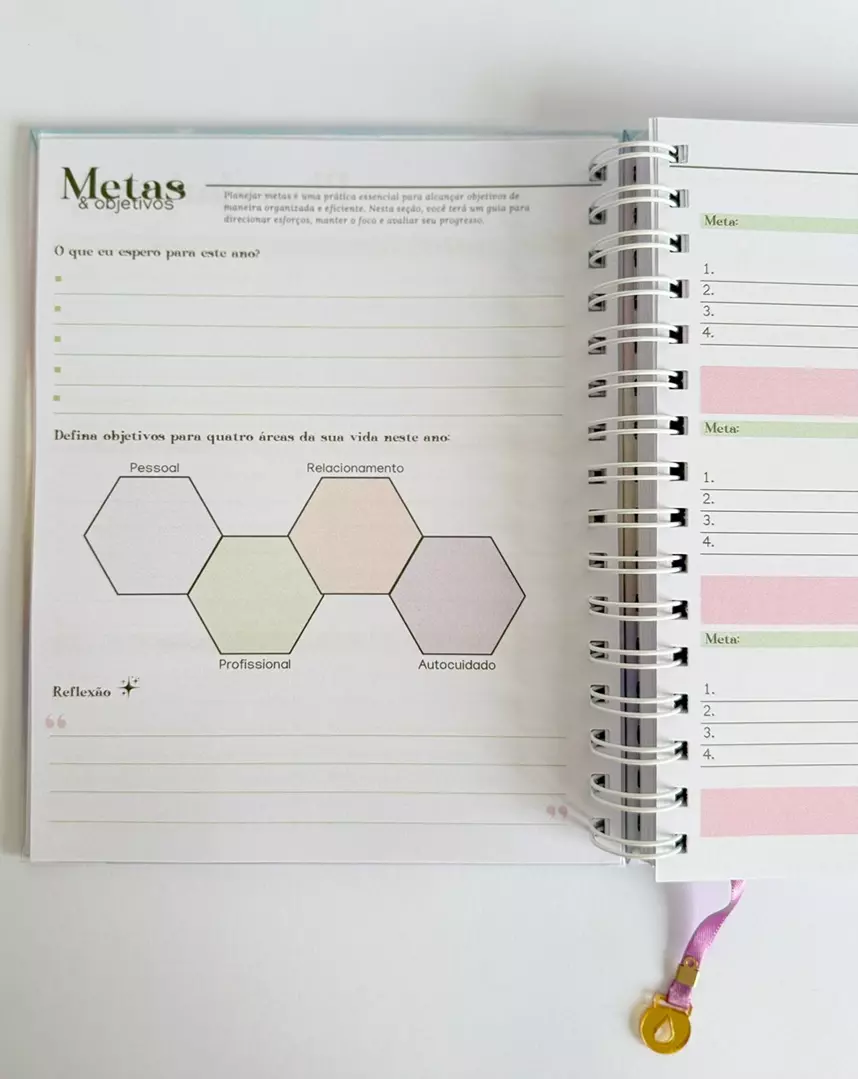 Metas
& objetivos
Planejar metas é uma prática essencial para alcançar objetivos de
maneira organizada e eficiente. Nesta seção, você terá um guia para
direcionar esforços, manter o foco e avaliar seu progresso.
O que eu espero para este ano?
Defina objetivos para quatro áreas da sua vida neste ano:
Pessoal
Relacionamento
Profissional
Autocuidado
Reflexão
“
”
Meta:
1.
2.
3.
4.
Meta:
1.
2.
3.
4.
Meta:
1.
2.
3.
4.